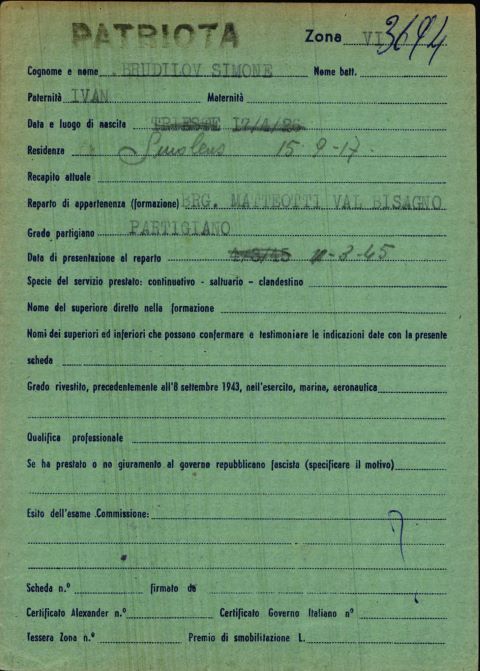 PATRIOTA Zona VI 3694
Cognome e nome BRUDILOV SIMONE Nome batt.
Paternità IVAN Maternità
Data e luogo di nascita TRIESTE 17/4/26
Residenza 15-9-17-
Recapito attuale
Reparto di appartenenza (formazione) BRG. MATTEOTTI VAL BISAGNO
Grado partigiano PARTIGIANO
Data di presentazione al reparto -3-45
Specie del servizio prestato: continuativo - saltuario - clandestino
Nome del superiore diretto nella formazione
Nomi dei superiori ed inferiori che possono confermare e testimoniare le indicazioni date con la presente
scheda
Grado rivestito, precedentemente all'8 settembre 1943, nell'esercito, marina, aeronautica
Qualifica professionale
Se ha prestato o no giuramento al governo repubblicano fascista (specificare il motivo)
Esito dell'esame Commissione:
Scheda n.º firmato da
Certificato Alexander n.º Certificato Governo Italiano nº
Tessera Zona n.º Premio di smobilitazione L.